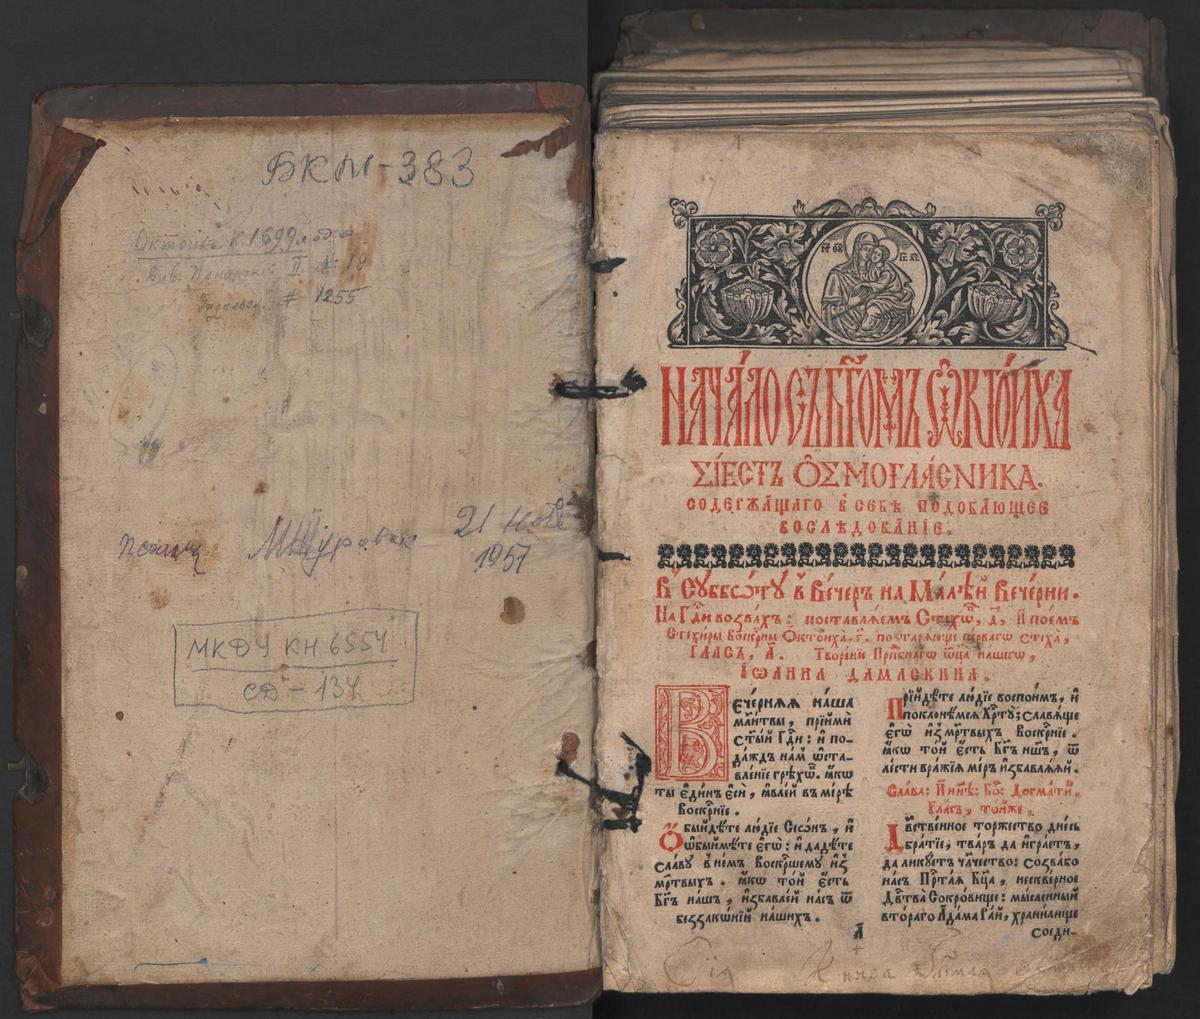 БКМ-383
Октоих 1699 года
II # 19
# 1255
21 нояб
1957
МКДУ КН 6554
СД - 137
НАЧА́ЛО СЪ БГ҃ОМЪ Ѡ҆КТО́ИХА
СІ́ЕСТЬ Ѻ҆СМОГЛА́СНИКА.
СОДЕРЖА́ЩАГО В СЕБѢ̀ ПОДОБА́ЮЩЕЕ
ВОСЛѢ́ДОВАНІЕ.
В̾ Сꙋббѡ́тꙋ в̾ Ве́черъ на Ма́лѣй Вече́рни.
На Гдⷭ҇и воззва́хъ: поставлѧ́емъ Стїхѡ́въ, д҃, И҆ пое́мъ
Стехи́ры Воскрⷭ҇ны Октои́ха. г҃. повтарѧ́юще пе́рваго стїха̀,
ГЛАСЪ, А҃. Творе́нїе Прпⷣбнагѡ ѻ҆ц҃а̀ на́шегѡ,
ІѠА́ННА ДАМАСКИ́НА.
ВЕЧЕ́РНѦѦ НА́ША
мл҃и́твы, прїимѝ
ст҃ы́й Гдⷭ҇и: и҆ по-
да́ждъ на́м ѡ҆ста-
вле́нїе грѣхѡ́в. ꙗ҆́кѡ
ты̀ є҆ди́нъ є҆сѝ, ꙗ҆вле́й въ мі́рѣ
Воскрⷭ҇нїе.
Ѻ҆быйдѣ́те лю́дїе Сїѡ́нъ, и҆
ѡ҆быими́те є҆го̀: и҆ дади́те
сла́вꙋ в̾ не́мъ Воскрⷭ҇шемꙋ и҆з̾
ме́ртвыхъ. ꙗ҆́кѡ то́й є҆́сть
Бг҃ъ на́шъ, и҆зба́влей на́съ ѿ
беззако́нїй на́шихъ.
Прїйдѣ́те лю́дїе воспои́мъ, и҆
поклони́мсѧ Хрⷭ҇тꙋ̀: сла́вѧще
є҆го̀ и҆з̾ ме́ртвыхъ Воскрⷭ҇нїе.
ꙗ҆́кѡ то́й є҆́сть Бг҃ъ на́шъ, ѿ
ле́сти вра́жїѧ мі́ръ и҆збавлѧ́ѧй.
Сла́ва: И҆ ны́нѣ: Бо: Догма́ти.
Гла́съ, то́йже.
Дв҃ственное торжество̀ дне́сь
бра́тїе, тва́рь да и҆гра́етъ,
да ликꙋ́етъ чл҃чество: созва́ бо
на́съ Прⷭ҇таѧ Бц҃а, нескве́рное
Дв҃ства Сокро́вище: мы́сленный
второ́гѡ А҆да́ма Ра́й, храни́лище
соеди-
А҃
Сїѧ Книга